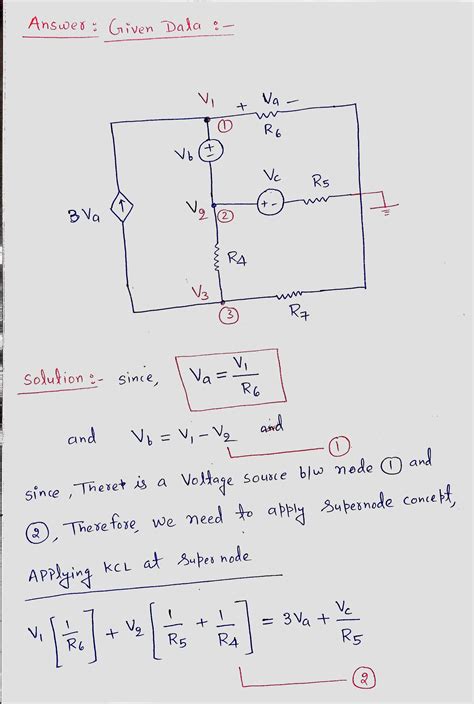 Answer: Given Data :-
V1 + Va -
① R6
Vb + -
Vc R5
3Va V2 ② + -
R4
V3
③ R7
Solution :- since, Va = V1/R6
and Vb = V1 - V2 and
①
since, There is a Voltage source b/w node ① and
②, Therefore, we need to apply supernode concept,
Applying KCL at Super node
V1 [1/R6] + V2 [1/R5 + 1/R4] = 3Va + Vc/R5
②